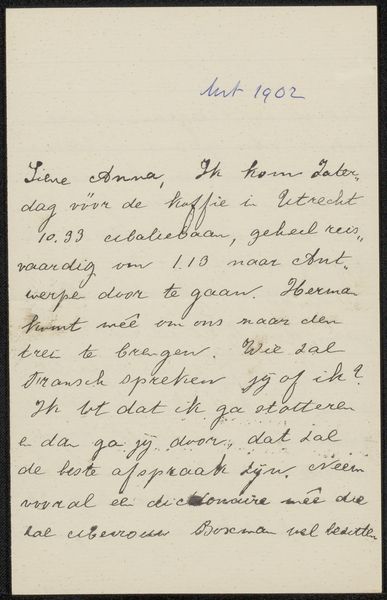 Mrt 1902
Lieve Anna, Ik kom Zater-
dag vóór de koffie in Utrecht
10.33 Maliebaan, geheel reis-
vaardig om 1.13 naar Ant-
werpe door te gaan. Herman
komt mêe om ons naar den
trei te brengen. Wie zal
Fransch spreken jij of ik?
Ik tot dat ik ga stotteren
en dan ga jij door, dat zal
de beste afspraak zijn. Neem
vooral een dictionaire mêe die
zal Mevrouw Bosman wel bezitten